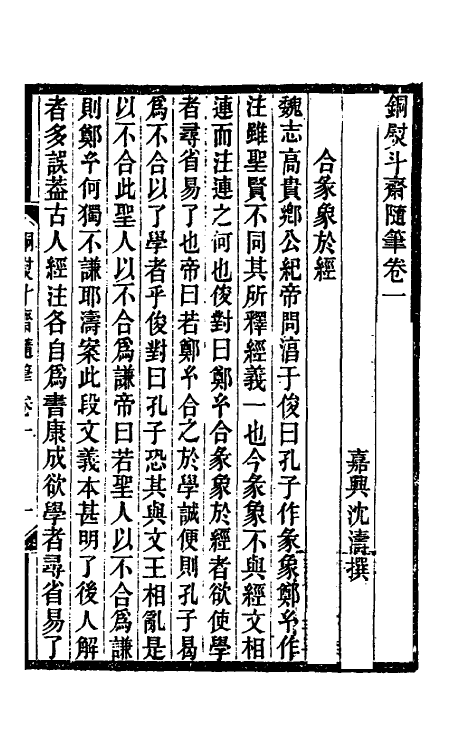 銅熨斗齋隨筆卷一
嘉興沈濤撰
合彖象於經
魏志高貴鄉公紀帝問淯于俊曰孔子作彖象鄭𤣥作
注雖聖賢不同其所釋經義一也今彖象不與經文相
連而注連之何也俊對曰鄭𤣥合彖象於經者欲使學
者尋省易了也帝曰若鄭𤣥合之於學誠便則孔子曷
爲不合以了學者乎俊對曰孔子恐其與文王相亂是
以不合此聖人以不合爲謙帝曰若聖人以不合爲謙
則鄭𤣥何獨不謙耶濤案此段文義本甚明了後人解
者多誤葢古人經注各自爲書康成欲學者尋省易了
銅熨斗齋隨筆 卷一
一